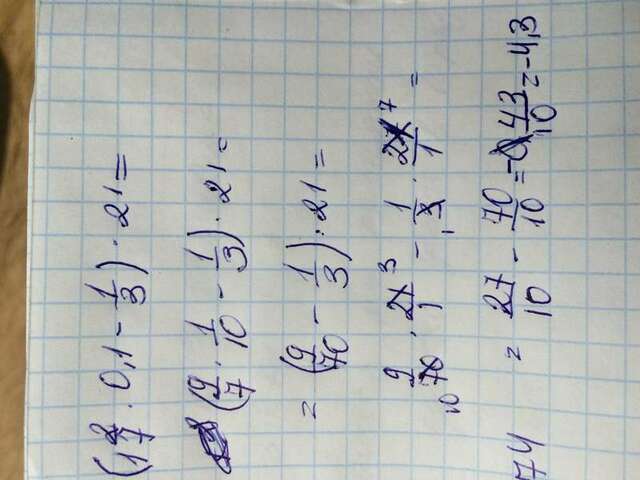 (1 2/7 · 0,1 - 1/3) · 21 =
(9/7 · 1/10 - 1/3) · 21 =
= (9/70 - 1/3) · 21 =
9/70 10 · 21/1 3 - 1/3 1 · 21/1 7 =
74 = 27/10 - 70/10 = - 43/10 = -4,3